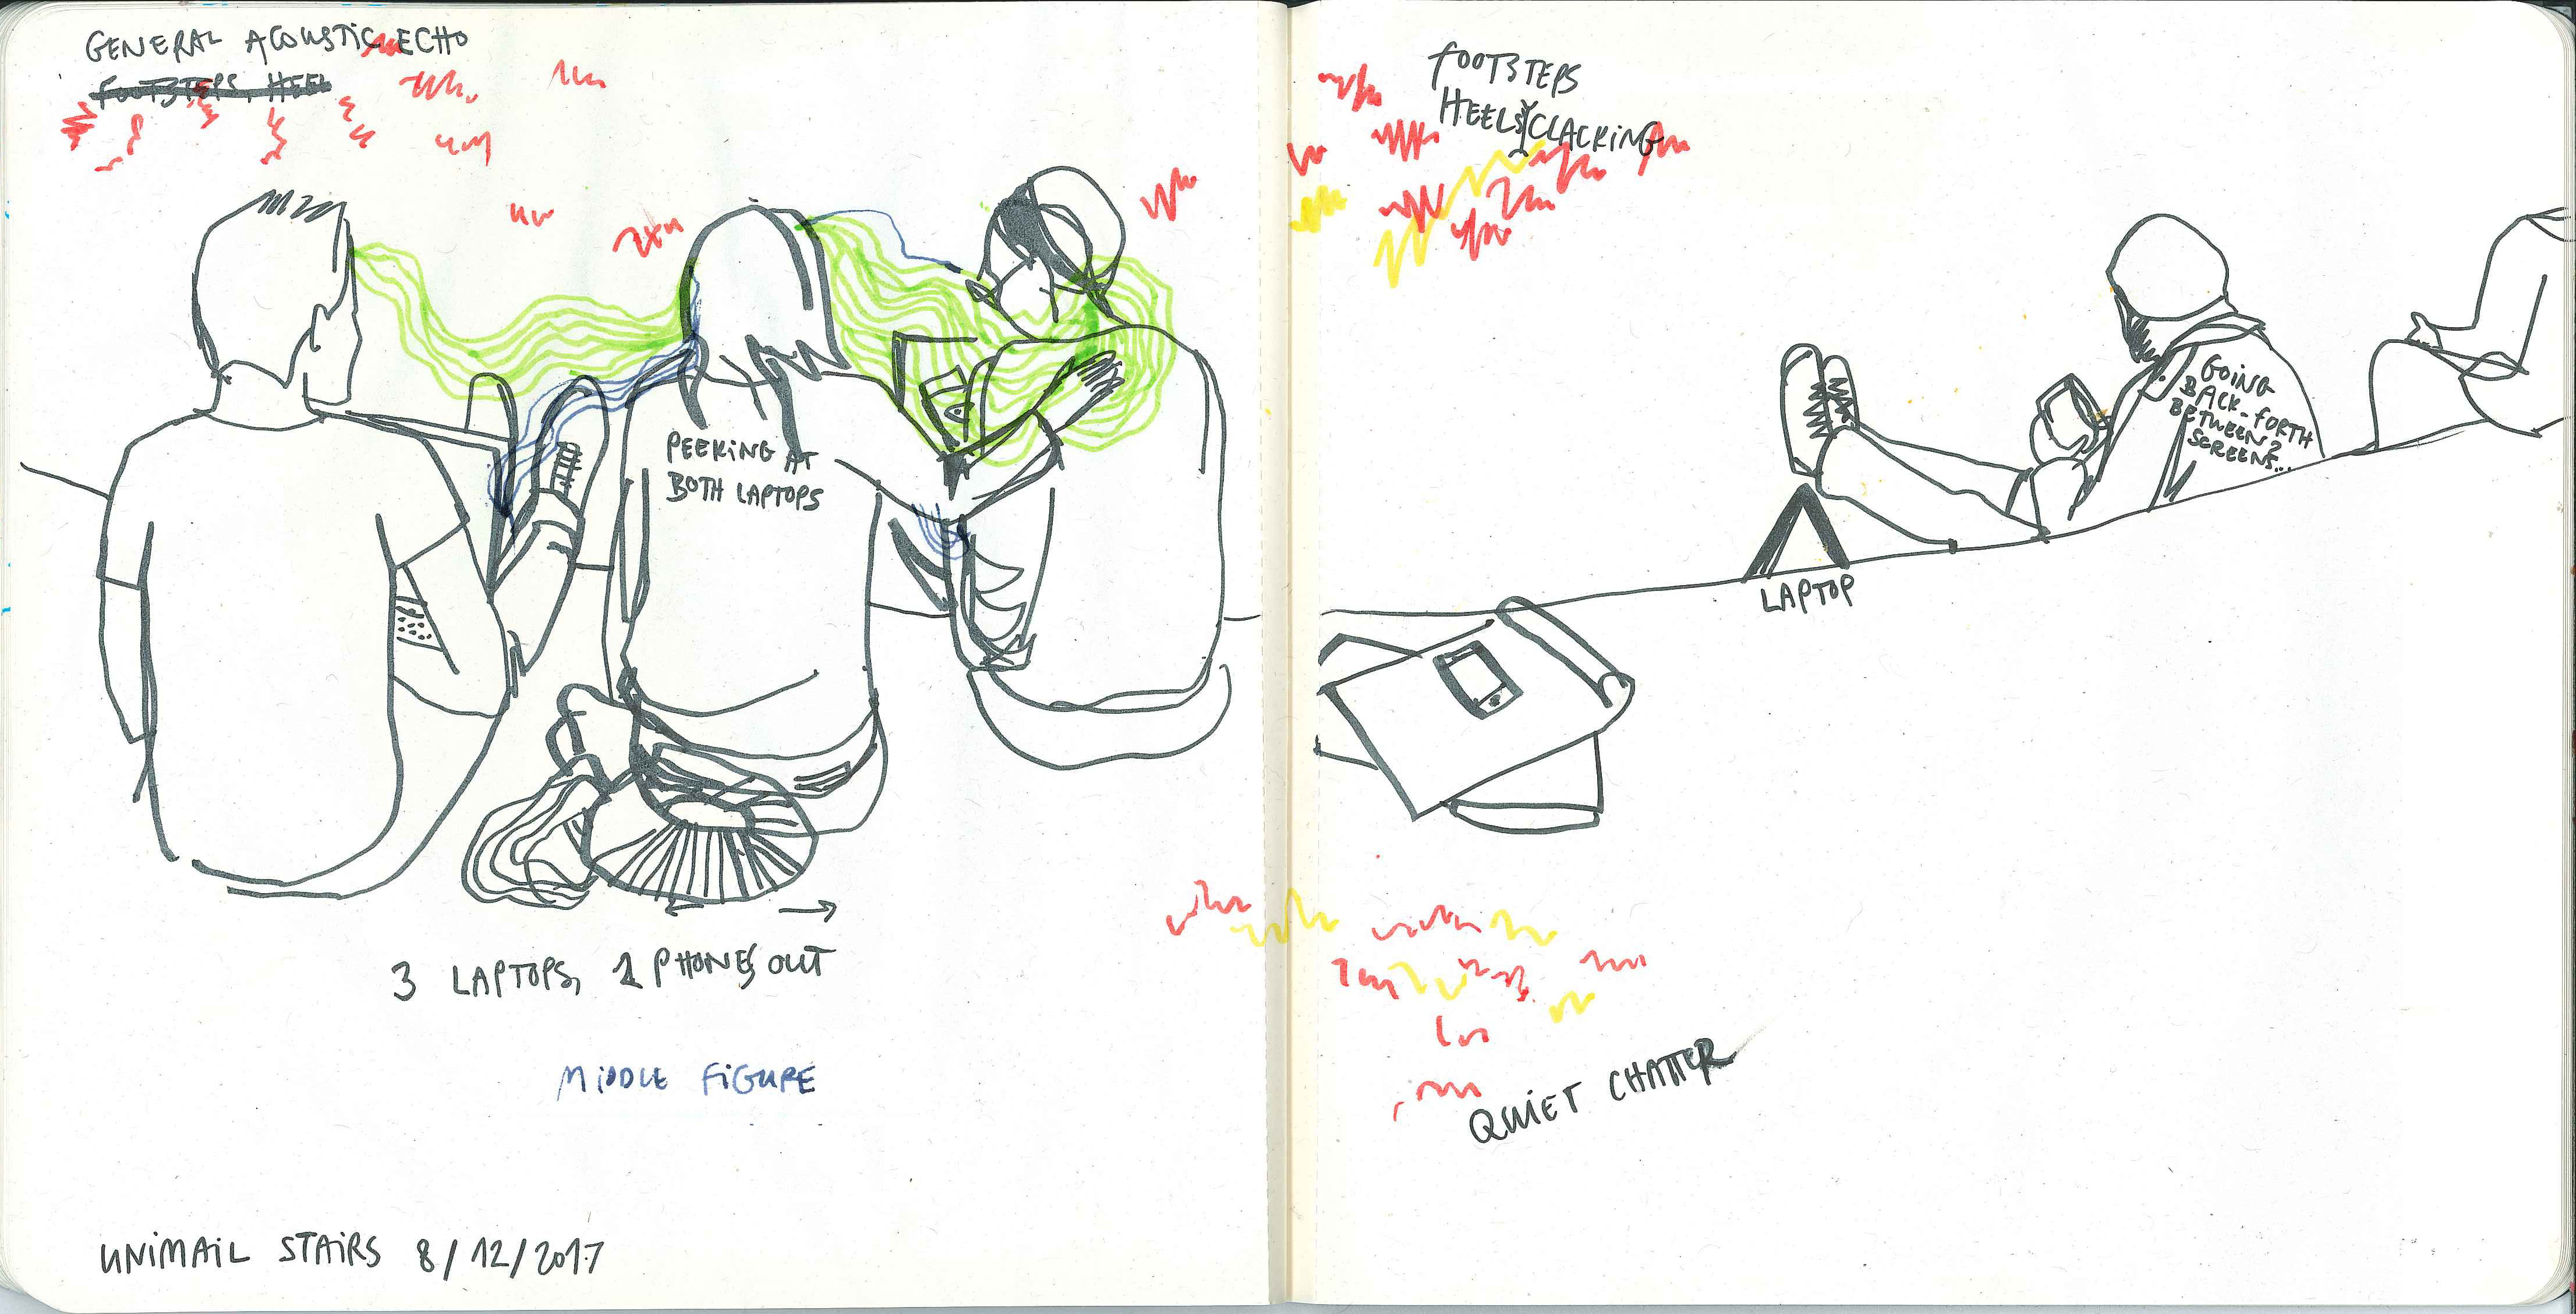 GENERAL ACOUSTIC ECHO
FOOTSTEPS, HEEL
FOOTSTEPS
HEELS CLACKING
PEEKING AT
BOTH LAPTOPS
GOING
BACK-FORTH
BETWEEN 2
SCREENS...
LAPTOP
3 LAPTOPS, 2 PHONES OUT
MIDDLE FIGURE
QUIET CHATTER
UNIMAIL STAIRS 8/12/2017